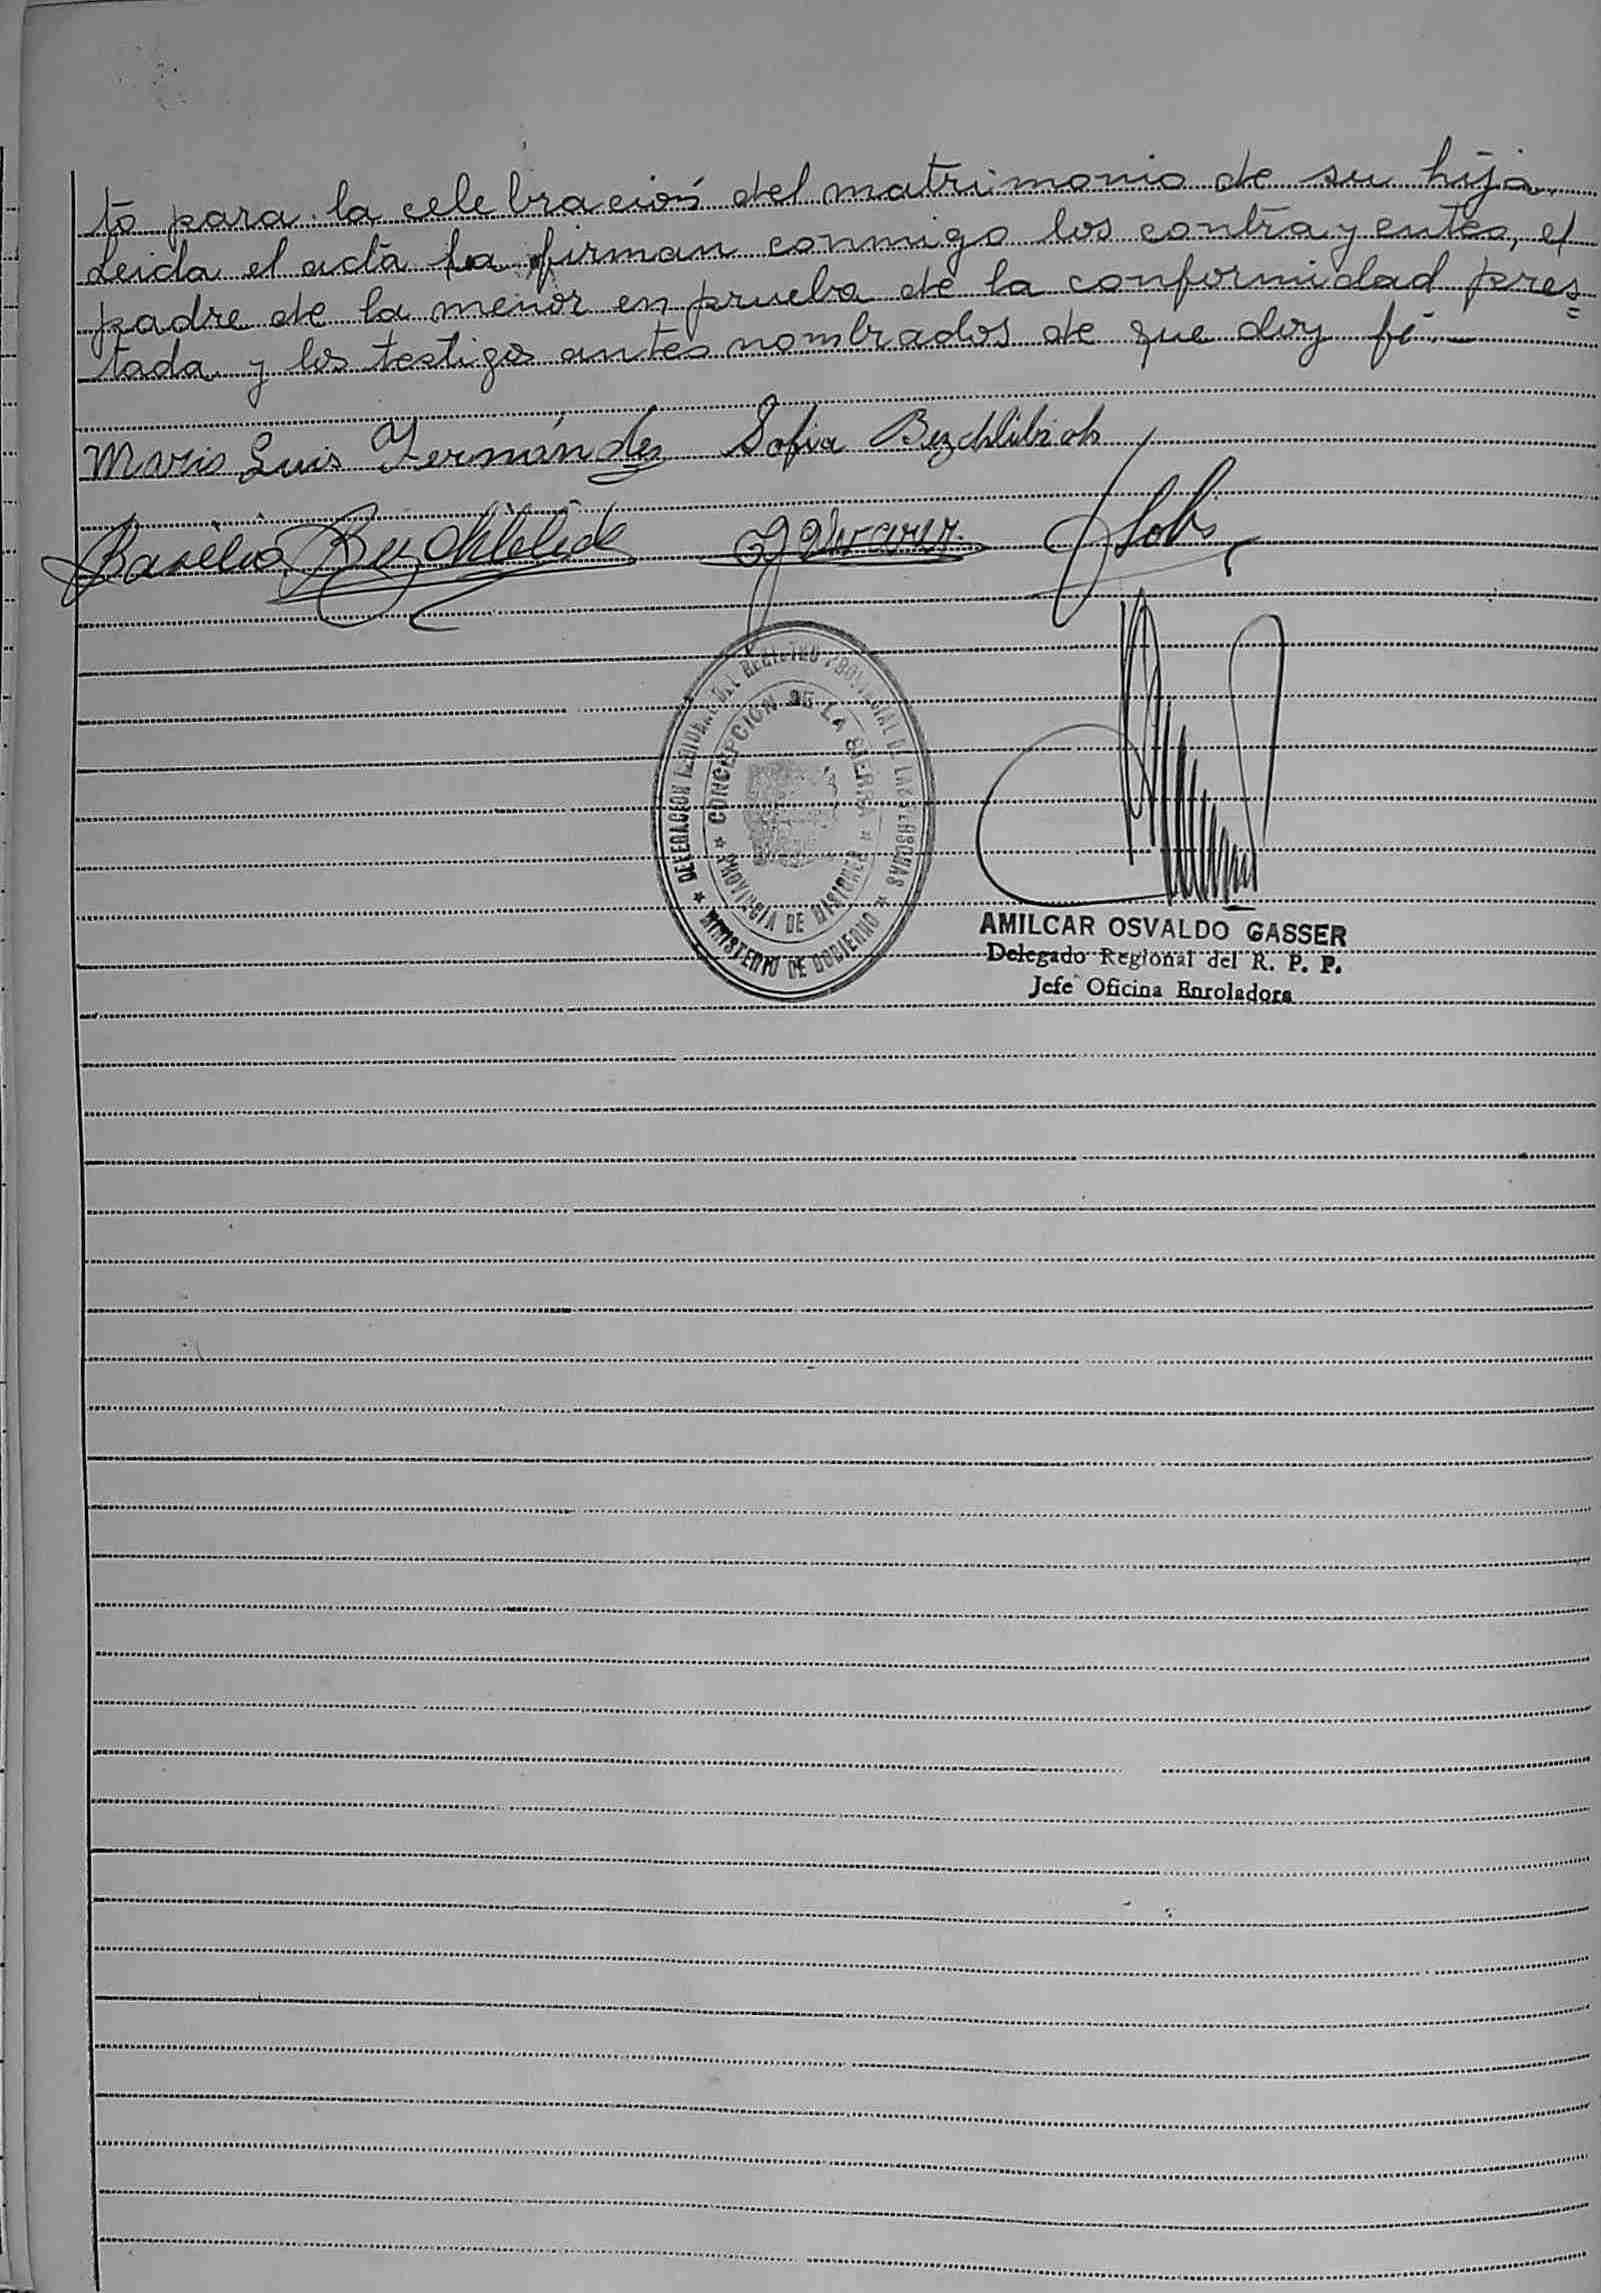 to para la celebración del matrimonio de su hija.
Leida el acta la firman conmigo los contrayentes, el
padre de la menor en prueba de la conformidad pres=
tada y los testigos antes nombrados de que doy fé.-
Luis Fernández Sofia
Basilio
DELEGACION REGIONAL DEL REGISTRO PROVINCIAL DE LAS PERSONAS
* MINISTERIO DE GOBIERNO *
* CONCEPCION DE LA SIERRA *
PROVINCIA DE MISIONES
AMILCAR OSVALDO GASSER
Delegado Regional del R. P. P.
Jefe Oficina Enroladora